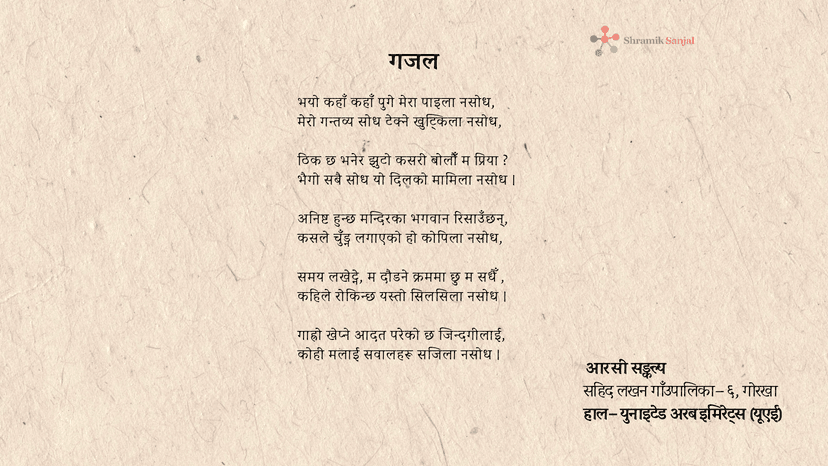 Shramik Sanjal
गजल
भयो कहाँ कहाँ पुगे मेरा पाइला नसोध,
मेरो गन्तव्य सोध टेक्ने खुट्किला नसोध,
ठिक छ भनेर झुटो कसरी बोलौँ म प्रिया ?
भैगो सबै सोध यो दिलको मामिला नसोध ।
अनिष्ट हुन्छ मन्दिरका भगवान रिसाउँछन्,
कसले चुँड्न लगाएको हो कोपिला नसोध,
समय लखेट्ने, म दौडने क्रममा छु म सधैँ ,
कहिले रोकिन्छ यस्तो सिलसिला नसोध ।
गाह्रो खेप्ने आदत परेको छ जिन्दगीलाई,
कोही मलाई सवालहरू सजिला नसोध ।
आरसी सङ्कल्प
सहिद लखन गाँउपालिका– ६, गोरखा
हाल– युनाइटेड अरब इमिरेट्स (यूएई)